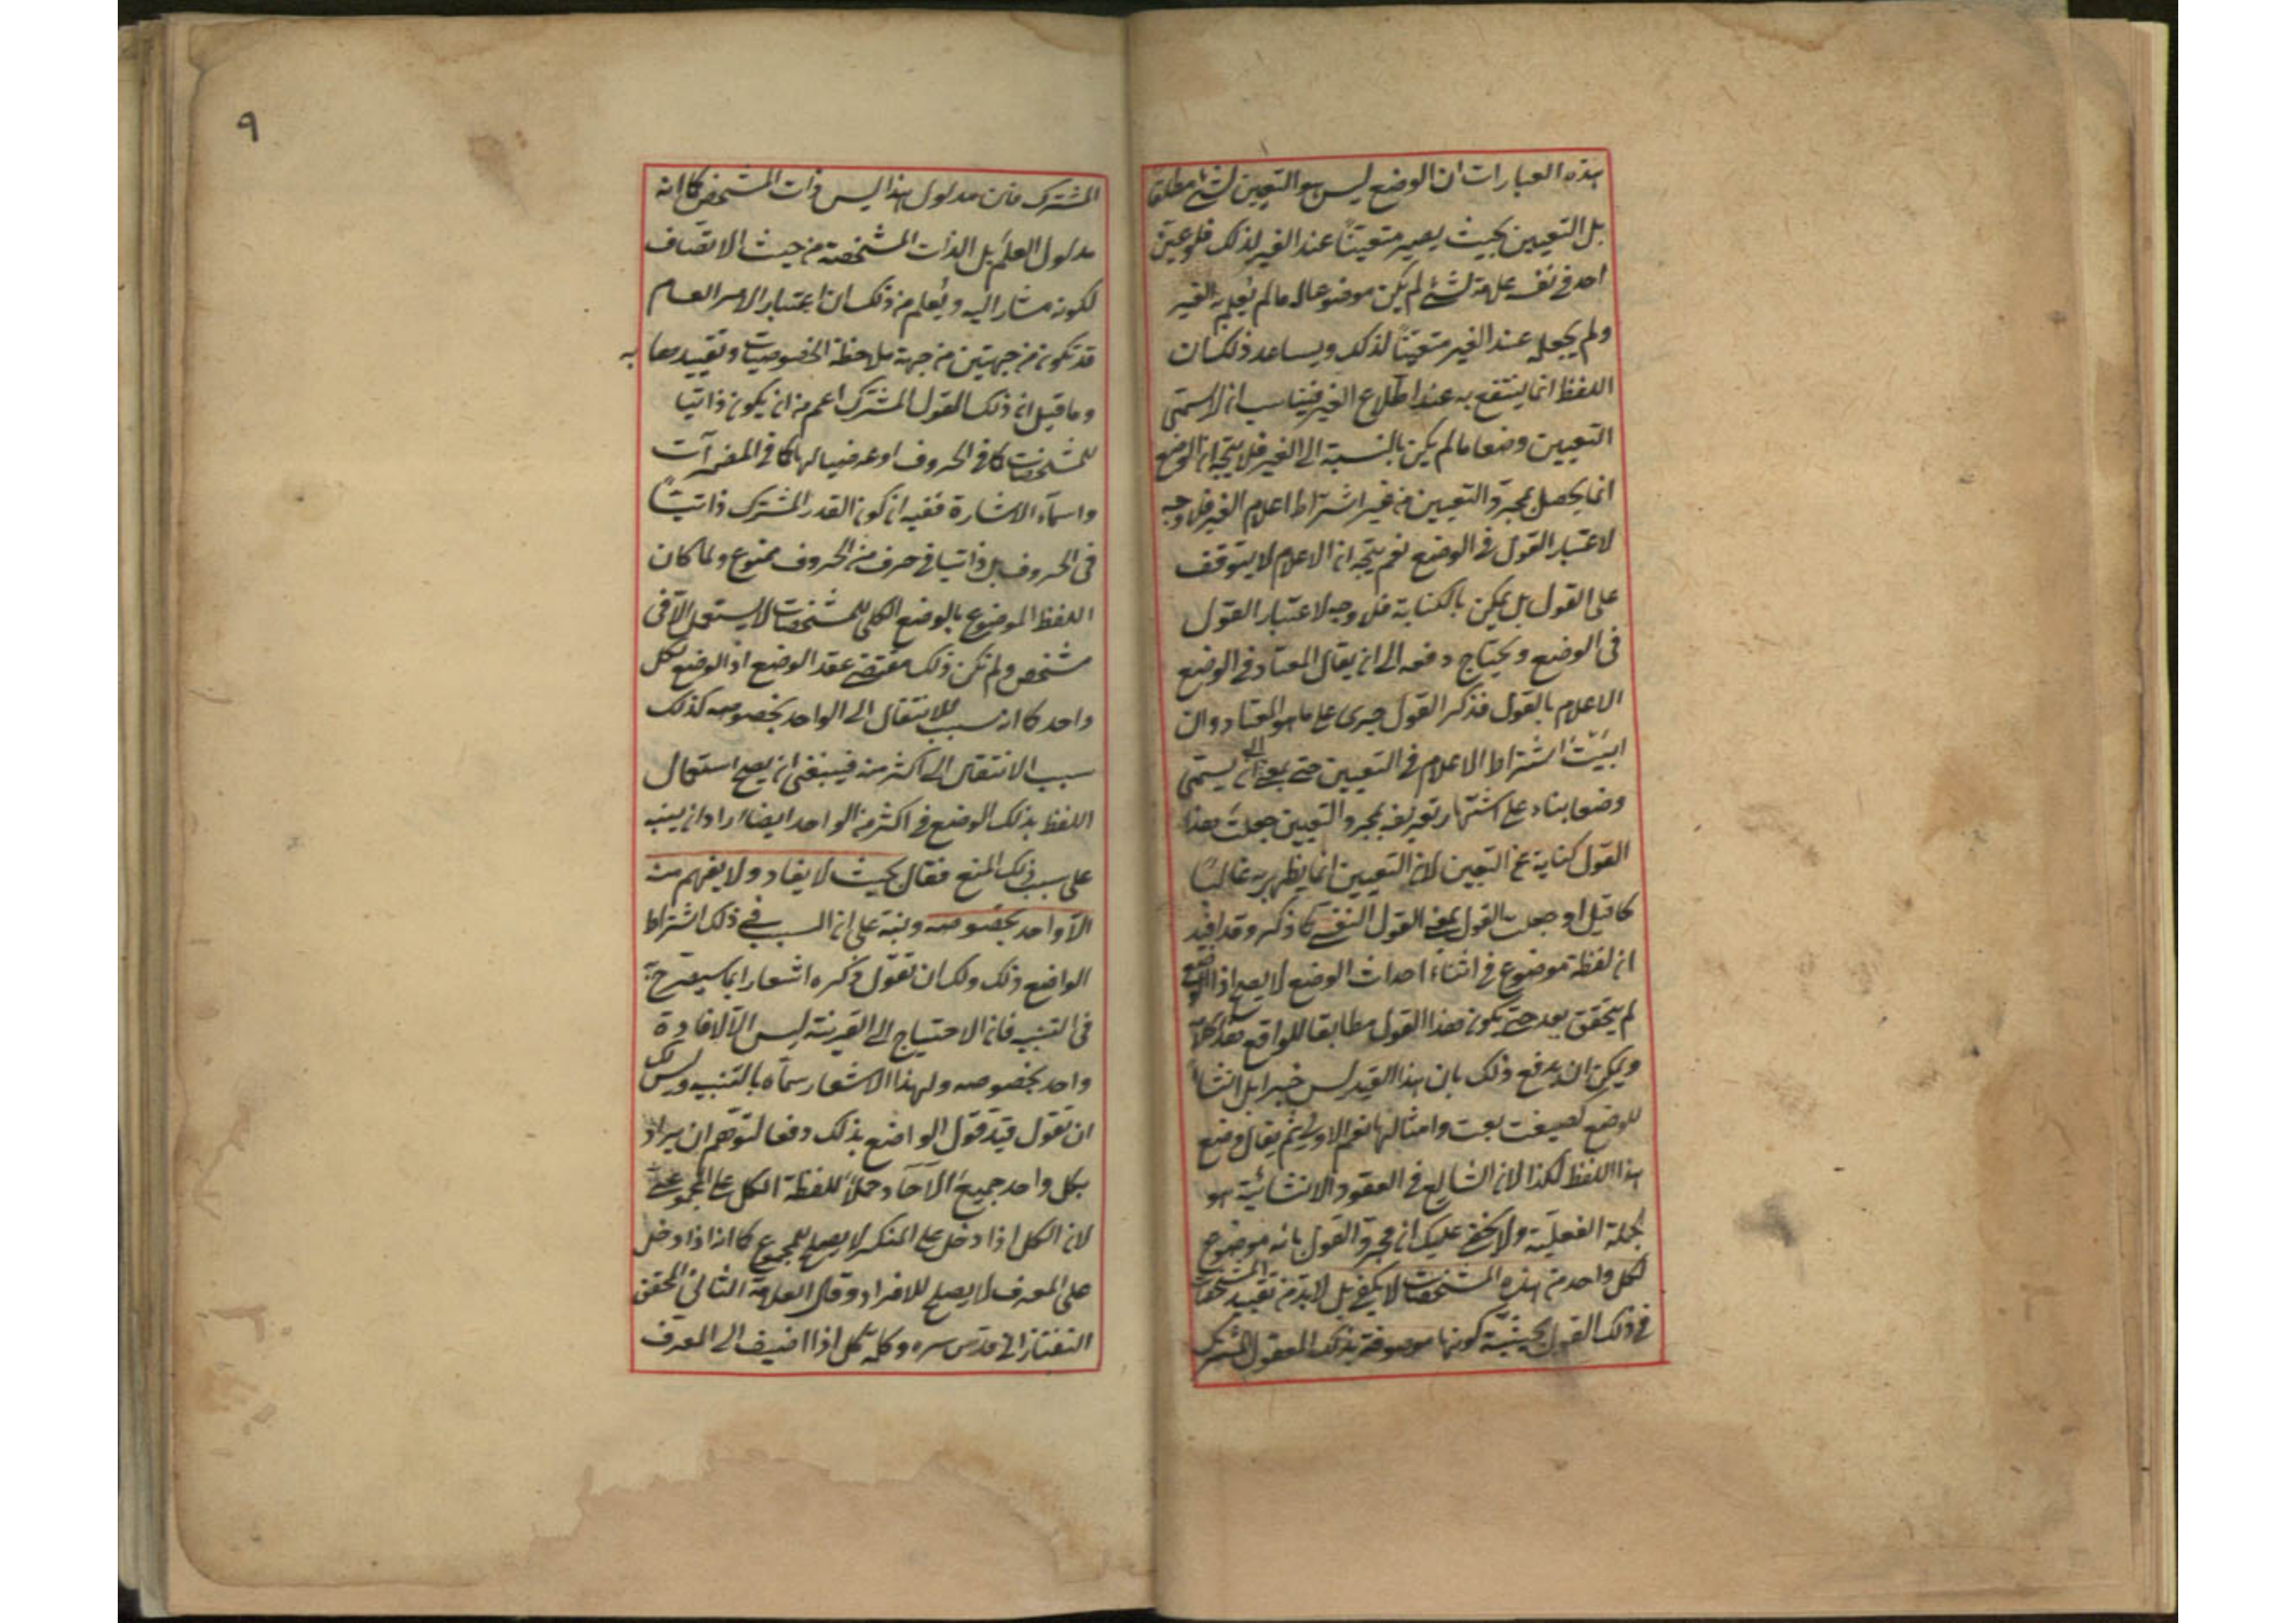 هذه العبارات ان الوضع ليس هو التعيين لشئ مطلقا
بل التعيين بحيث يصير متعينا عند الغير لذلك فلو عين
احد فى نفسه علامة لشئ لم يكن موضوعا له ما لم يعلم به الغير
ولم يجعله عند الغير متعينا لذلك ويساعد ذلك ان
اللفظ انما ينتفع به عند اطلاع الغير فيناسب ان لا يسمى
التعيين وضعا ما لم يكن بالنسبة الى الغير فلا يتجه ان الوضع
انما يحصل بمجرد التعيين من غير اشتراط اعلام الغير فلا وجه
لاعتبار القول فى الوضع نعم يتجه ان الاعلام لا يتوقف
على القول بل يمكن بالكتابة فلا وجه لاعتبار القول
فى الوضع ويحتاج دفعه الى ان يقال المعتاد فى الوضع
الاعلام بالقول فذكر القول جرى على ما هو المعتاد وان
ابيت اشتراط الاعلام فى التعيين حتى يسمى
وضعا بناء على اشتهار تعريفه بمجرد التعيين جعلت هذا
القول كناية عن التعيين لان التعيين انما يظهر به غالبا
كما قيل او جعلت القول بمعنى القول النفسى كما ذكر وقد افيد
ان لفظة موضوع فى اثناء احداث الوضع لا يصح اذ الوضع
لم يتحقق بعد حتى يكون هذا القول مطابقا للواقع
ويمكن ان يدفع ذلك بان هذا القيد ليس خبرا بل انشاء
للوضع كصيغت بعت وامثالها نعم الاولى ثم يقال وضع
هذا اللفظ لكذا لان الشايع فى العقود الانشائية هو
الجملة الفعلية ولا يخفى عليك ان مجرد القول بانه موضوع
لكل واحد من هذه المشخصات لا يكفى بل لا بد من تقييد المشخصات
فى ذلك القول بحيثية كونها موصوفة بذلك المعقول المشترك
٩
المشترك فان مدلول هذا ليس ذات المشخص كما انه
مدلول العلم بل الذات المشخصة من حيث الاتصاف
لكونه مشارا اليه ويعلم من ذلك ان اعتبار الامر العام
قد تكون من جهتين من جهة ملاحظة الخصوصيات وتقييدها به
وما قيل ان ذلك القول المشترك اعم من ان يكون ذاتيا
للمشخصات كما فى الحروف او عرضيا لها كما فى المضمرات
واسماء الاشارة ففيه ان كون القدر المشترك ذاتيا
فى الحروف بل ذاتيا فى حرف من الحروف ممنوع ولما كان
اللفظ الموضوع بالوضع الكلى للمشخصات لا يستعمل الا فى
مشخص ولم تكن ذلك مقتضى عقد الوضع اذ الوضع لكل
واحد كما انه سبب للانتقال الى الواحد بخصوصه كذلك
سبب الانتقال الى اكثر منه فينبغى ان يصح استعمال
اللفظ بذلك الوضع فى اكثر من الواحد ايضا اراد ان ينبه
على سبب ذلك المنع فقال بحيث لا يفاد ولا يفهم منه
الا واحد بخصوصه ونبه على ان السبب فى ذلك اشتراط
الواضع ذلك ولك ان تقول ذكره اشعارا بما سيصرح به
فى التنبيه فان الاحتياج الى القرينة ليس الا لافادة
واحد بخصوصه ولهذا الاشعار سماه بالتنبيه وليس لك
ان تقول قيد قول الواضع بذلك دفعا لتوهم ان يراد
بكل واحد جميع الآحاد حملا للفظة الكل على المجموعى
لان الكل اذا دخل على المنكر لا يصلح للمجموع كما انه اذا دخل
على المعرف لا يصلح للافراد وقال العلامة الثانى المحقق
التفتازانى قدس سره وكلمة كل اذا اضيف الى المعرف